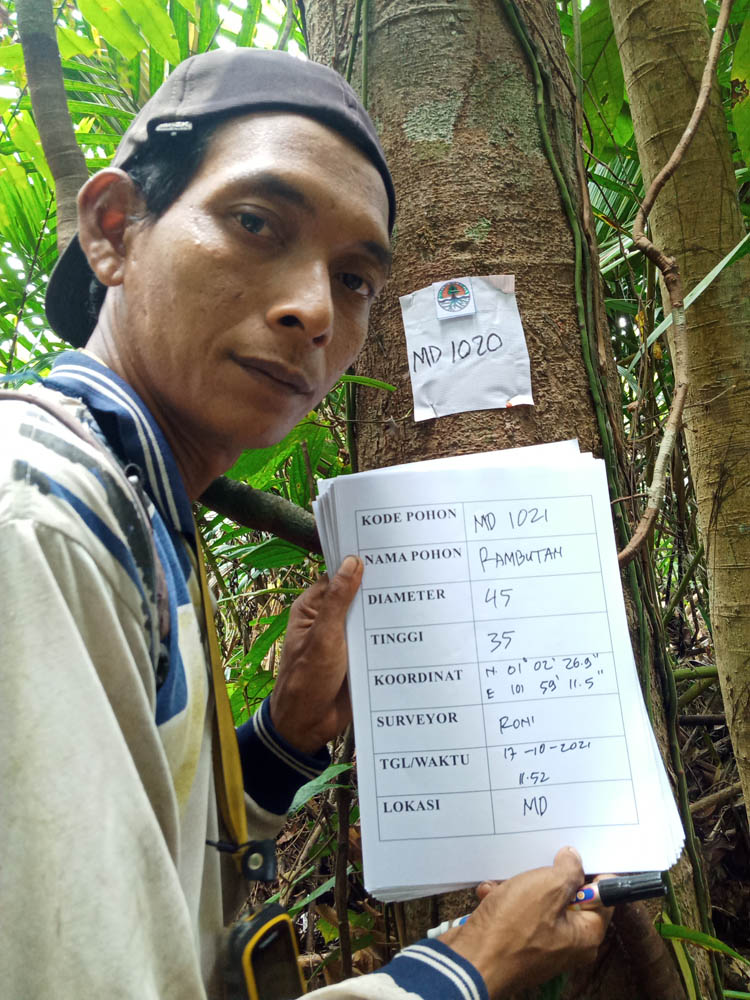 MD 1020
KODE POHON MD 1021
NAMA POHON RAMBUTAN
DIAMETER 45
TINGGI 35
KOORDINAT N. 01° 02' 26.9"
E 101 59' 11.5"
SURVEYOR RONI
TGL/WAKTU 17-10-2021
11.52
LOKASI MD